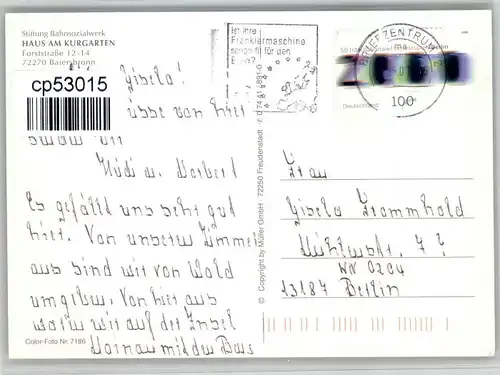 Stiftung Bahnsozialwerk
HAUS AM KURGARTEN
Forststraße 12-14
72270 Baiersbronn
cp53015
Gisela!
Ist Ihre
Frankiermaschine
schon fit für den
BRIEFZENTRUM
100
Deutschland
Frau
Gisela Frommhold
Mühlenstr. 7?
WN 0204
13187 Berlin
Es gefällt uns sehr gut
hier. Von unserem Zimmer
aus sind wir von Wald
umgeben. Von hier aus
waren wir auf der Insel
Mainau mit dem Bus
Color-Foto Nr. 7186
© Copyright by Müller GmbH · 72250 Freudenstadt